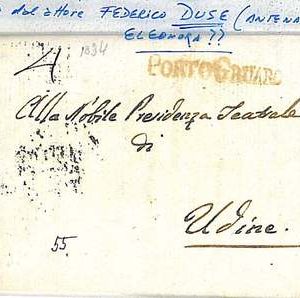 dal attore FEDERICO DUSE (ANTENA
ELEONORA ??
1834
PORTOGRUARO
Alla Nobile Presidenza Teatrale
di
Udine.
55.